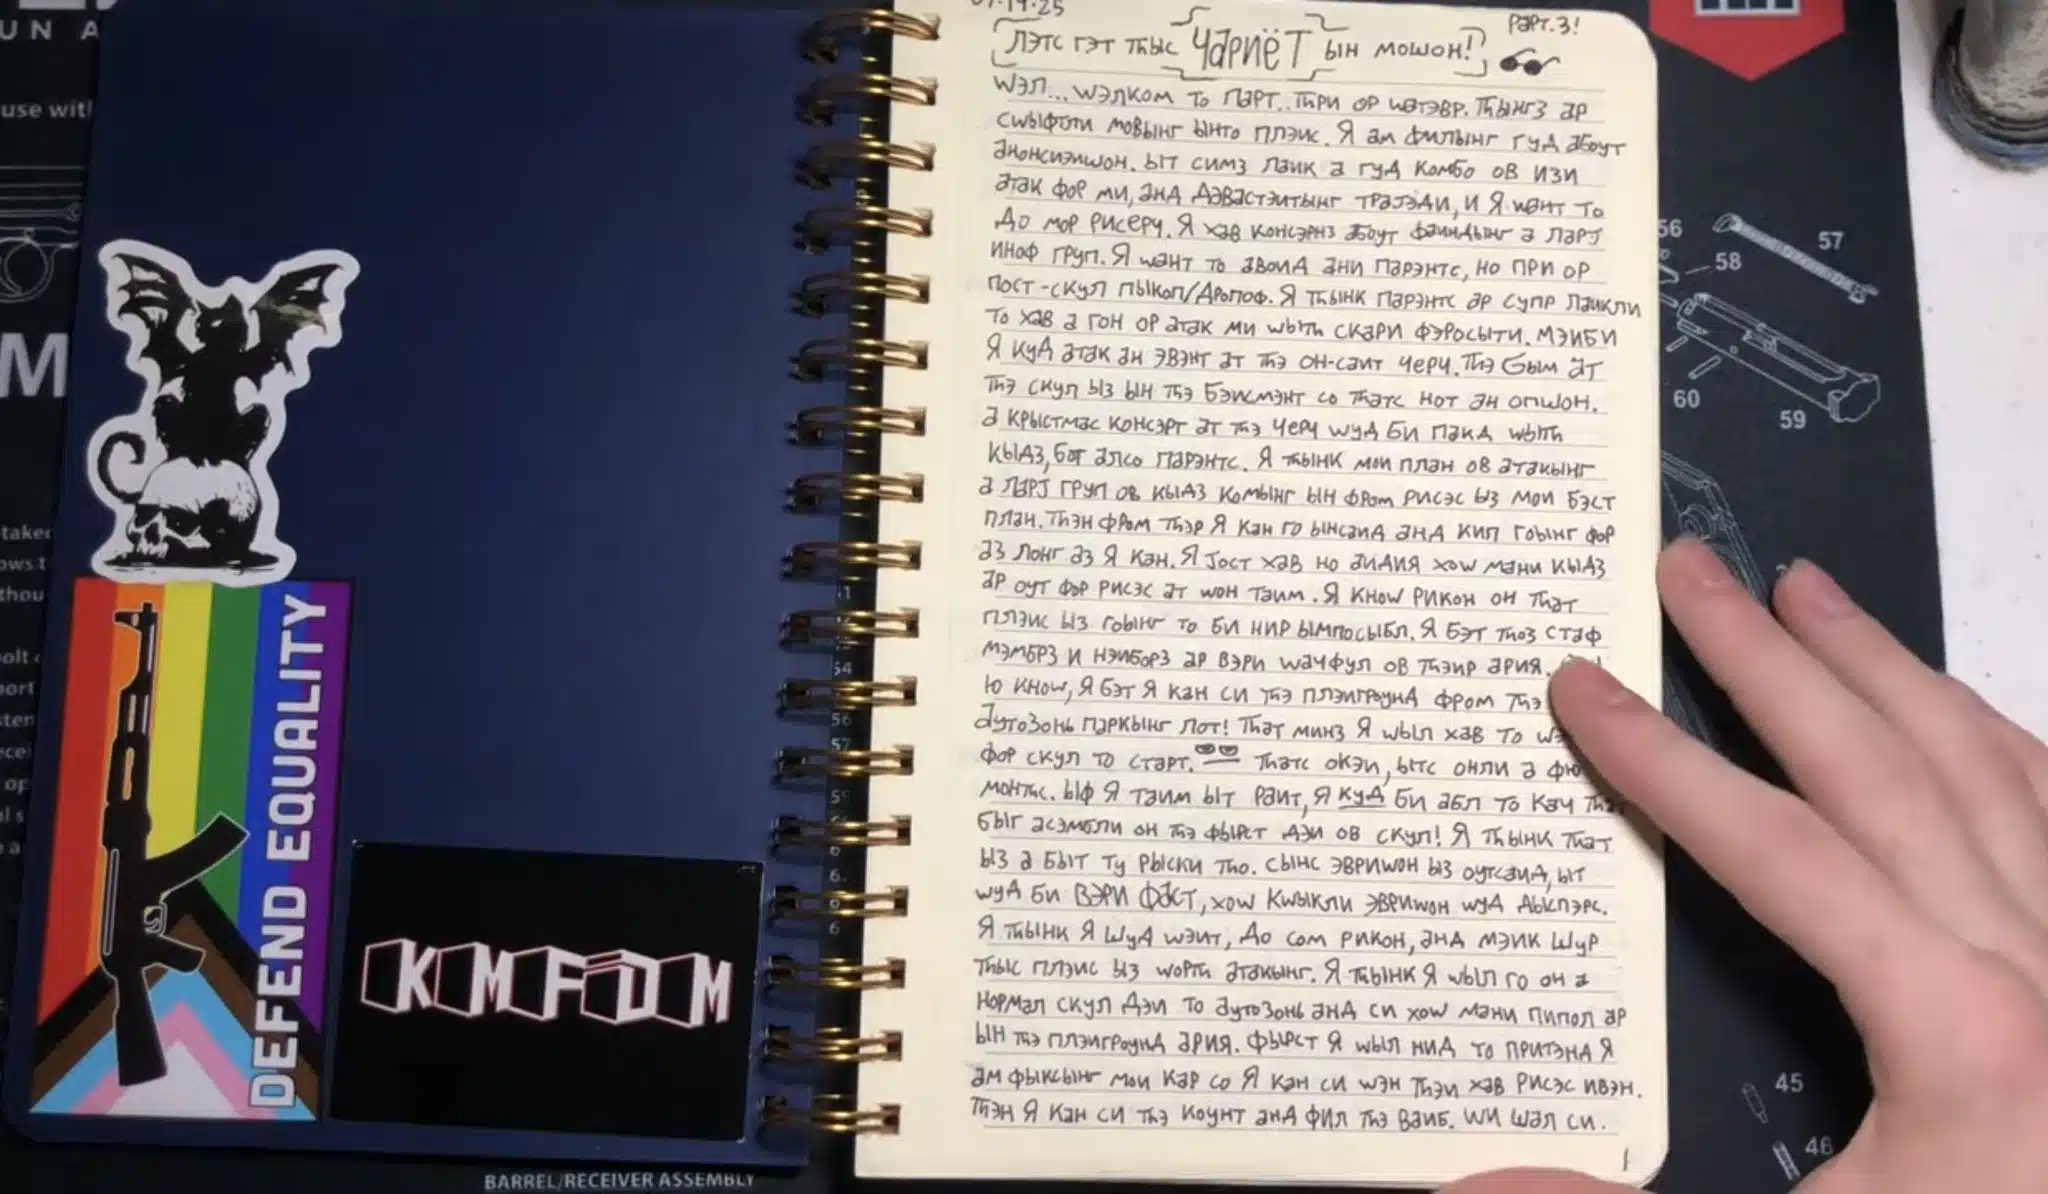 UN A
use with
DEFEND EQUALITY
KMFDM
BARREL/RECEIVER ASSEMBLY
ЛЭТС ГЭТ ТҺЫС ЧАРИЁТ ЫН МОШОН!
PАРТ.3!
WЭЛ... WЭЛКОМ ТО ПАРТ..ТҺРИ ОР WАТЭВР. ТҺЫНГЗ АР
СWЫФТЛИ МОВЫНГ ЫНТО ПЛЭИС. Я АМ ФИЛЫНГ ГУД АБОУТ
АНОНСИЭИШОН. ЫТ СИМЗ ЛАИК А ГУД КОМБО ОВ ИЗИ
АТАК ФОР МИ, АНД ДЭВАСТЭИТЫНГ ТРАJЭДИ, И Я WАНТ ТО
ДО МОР РИСЕРЧ. Я ХАВ КОНСЭРНЗ АБОУТ ФАИНДЫНГ А ЛАРJ
ИНОФ ГРУП. Я WАНТ ТО АВОИД АНИ ПАРЭНТС, НО ПРИ ОР
ПОСТ-СКУЛ ПЫКОП/ДРОПОФ. Я ТҺЫНК ПАРЭНТС АР СУПР ЛАИКЛИ
ТО ХАВ А ГОН ОР АТАК МИ WЫТҺ СКАРИ ФЭРОСЫТИ. МЭИБИ
Я КУД АТАК АН ЭВЭНТ АТ ТҺЭ ОН-САИТ ЧЕРЧ. ТҺЭ GЫМ АТ
ТҺЭ СКУЛ ЫЗ ЫН ТҺЭ БЭИСМЭНТ СО ТҺАТС НОТ АН ОПШОН.
А КРЫСТМАС КОНСЭРТ АТ ТҺЭ ЧЕРЧ WУД БИ ПАКД WЫТҺ
КЫДЗ, БОТ АЛСО ПАРЭНТС. Я ТҺЫНК МОИ ПЛАН ОВ АТАКЫНГ
А ЛАРJ ГРУП ОВ КЫДЗ КОМЫНГ ЫН ФРОМ РИСЭС ЫЗ МОИ БЭСТ
ПЛАН. ТҺЭН ФРОМ ТҺЭР Я КАН ГО ЫНСАИД АНД КИП ГОЫНГ ФОР
АЗ ЛОНГ АЗ Я КАН. Я JОСТ ХАВ НО АИДИЯ ХОW МАНИ КЫДЗ
АР ОУТ ФОР РИСЭС АТ WОН ТАИМ. Я КНОW РИКОН ОН ТҺАТ
ПЛЭИС ЫЗ ГОЫНГ ТО БИ НИР ЫМПОСЫБЛ. Я БЭТ ТҺОЗ СТАФ
МЭМБРЗ И НЭИБОРЗ АР ВЭРИ WАЧФУЛ ОВ ТҺЭИР АРИЯ.
Ю КНОW, Я БЭТ Я КАН СИ ТҺЭ ПЛЭИГРОУНД ФРОМ ТҺЭ
АУТОЗОНЬ ПАРКЫНГ ЛОТ! ТҺАТ МИНЗ Я WЫЛ ХАВ ТО
ФОР СКУЛ ТО СТАРТ. ТҺАТС ОКЭИ, ЫТС ОНЛИ А ФЮ
МОНТҺС. ЫФ Я ТАИМ ЫТ РАИТ, Я КУД БИ АБЛ ТО КАЧ
БЫГ АСЭМБЛИ ОН ТҺЭ ФЫРСТ ДЭИ ОВ СКУЛ! Я ТҺЫНК ТҺАТ
ЫЗ А БЫТ ТУ РЫСКИ ТҺО. СЫНС ЭВРИWОН ЫЗ ОУТСАИД, ЫТ
WУД БИ ВЭРИ ФАСТ, ХОW КWЫКЛИ ЭВРИWОН WУД ДЫСПЭРС.
Я ТҺЫНК Я ШУД WЭИТ, ДО СОМ РИКОН, АНД МЭИК ШУР
ТҺЫС ПЛЭИС ЫЗ WОРТҺ АТАКЫНГ. Я ТҺЫНК Я WЫЛ ГО ОН А
НОРМАЛ СКУЛ ДЭИ ТО АУТОЗОНЬ АНД СИ ХОW МАНИ ПИПОЛ АР
ЫН ТҺЭ ПЛЭИГРОУНД АРИЯ. ФЫРСТ Я WЫЛ НИД ТО ПРИТЭНД Я
АМ ФЫКСЫНГ МОИ КАР СО Я КАН СИ WЭН ТҺЭИ ХАВ РИСЭС ИВЭН.
ТҺЭН Я КАН СИ ТҺЭ КОУНТ АНД ФИЛ ТҺЭ ВАИБ. WИ ШАЛ СИ.
1
57
58
60
59
45
46